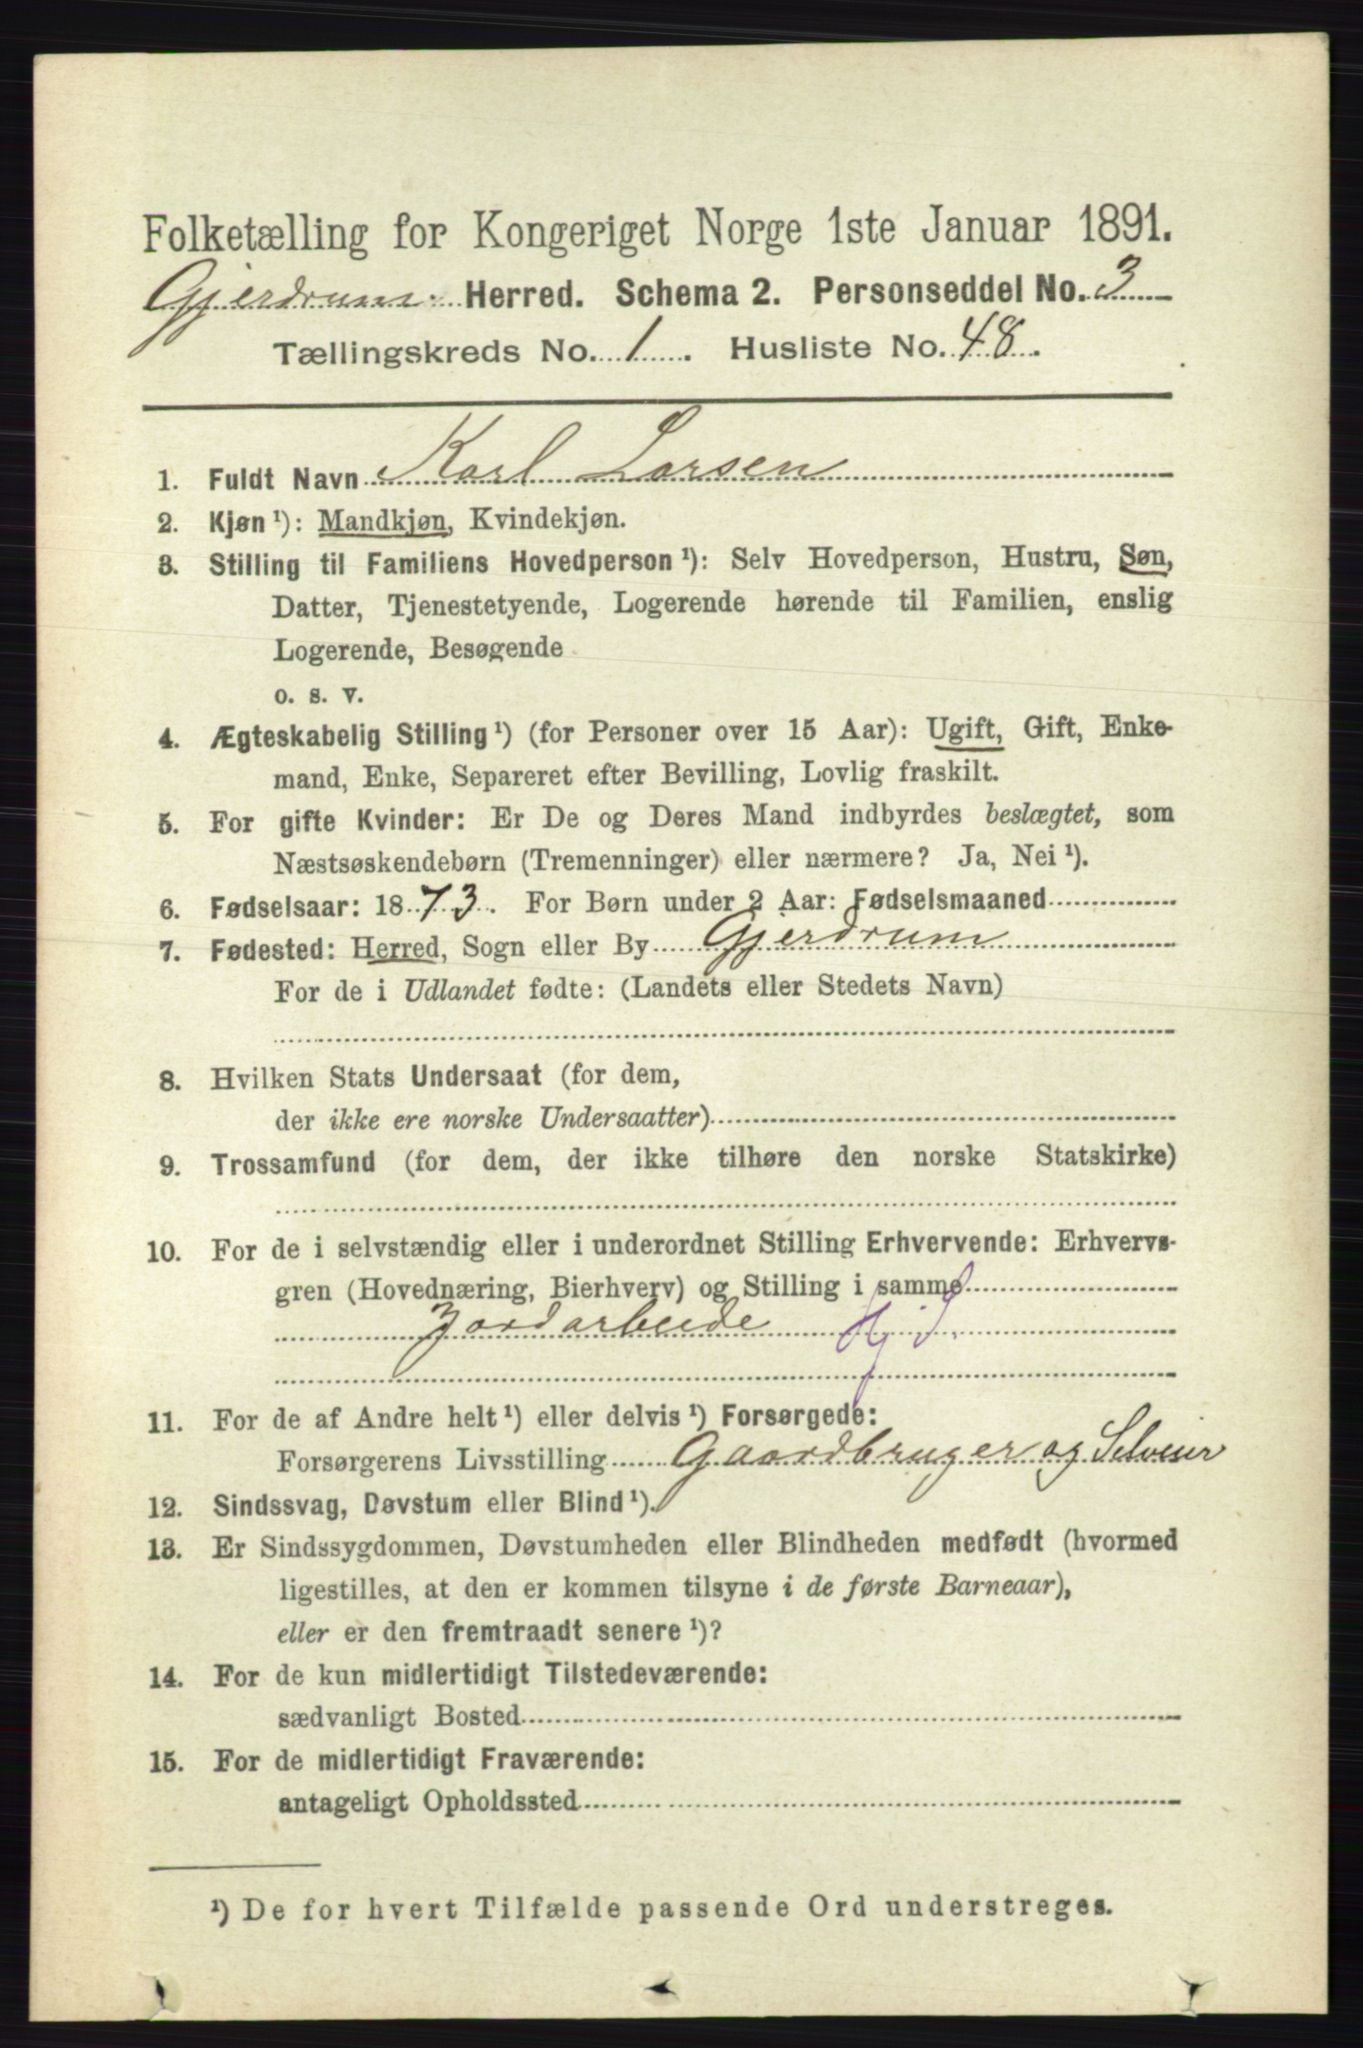 Folketælling for Kongeriget Norge 1ste Januar 1891.
Gjerdrum Herred. Schema 2. Personseddel No. 3
Tællingskreds No. 1. Husliste No. 48.
1. Fuldt Navn Karl Larsen
2. Kjøn ¹): Mandkjøn, Kvindekjøn.
3. Stilling til Familiens Hovedperson ¹): Selv Hovedperson, Hustru, Søn,
Datter, Tjenestetyende, Logerende hørende til Familien, enslig
Logerende, Besøgende
o. s. v.
4. Ægteskabelig Stilling ¹) (for Personer over 15 Aar): Ugift, Gift, Enke-
mand, Enke, Separeret efter Bevilling, Lovlig fraskilt.
5. For gifte Kvinder: Er De og Deres Mand indbyrdes beslægtet, som
Næstsøskendebørn (Tremenninger) eller nærmere? Ja, Nei ¹).
6. Fødselsaar: 1873. For Børn under 2 Aar: Fødselsmaaned
7. Fødested: Herred, Sogn eller By Gjerdrum
For de i Udlandet fødte: (Landets eller Stedets Navn)
8. Hvilken Stats Undersaat (for dem,
der ikke ere norske Undersaatter)
9. Trossamfund (for dem, der ikke tilhøre den norske Statskirke)
10. For de i selvstændig eller i underordnet Stilling Erhvervende: Erhvervs-
gren (Hovednæring, Bierhverv) og Stilling i samme
Jordarbeide
11. For de af Andre helt ¹) eller delvis ¹) Forsørgede:
Forsørgerens Livsstilling Gaardbruger og Selveier
12. Sindssvag, Døvstum eller Blind ¹).
13. Er Sindssygdommen, Døvstumheden eller Blindheden medfødt (hvormed
ligestilles, at den er kommen tilsyne i de første Barneaar),
eller er den fremtraadt senere ¹)?
14. For de kun midlertidigt Tilstedeværende:
sædvanligt Bosted
15. For de midlertidigt Fraværende:
antageligt Opholdssted
¹) De for hvert Tilfælde passende Ord understreges.